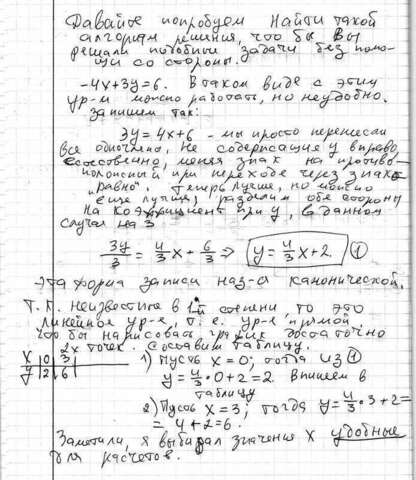 Давайте попробуем найти такой
алгоритм решения, что бы Вы
решали подобные задачи без помо-
щи со стороны.
-4x+3y=6. В таком виде с этим
ур-м можно работать, но неудобно.
Запишем так:
3y=4x+6 - мы просто перенесли
все одночлены, не содержащие y вправо,
естественно, меняя знак на противо-
положный при переходе через знак
"равно". Теперь лучше, но можно
еще лучше, разделим обе стороны
на коэффициент при y, в данном
случае на 3
3y/3 = 4/3 x + 6/3 => y = 4/3 x + 2 ①
Эта форма записи наз-я канонической.
Т.к. неизвестные в 1й степени то это
линейное ур-е, т.е. ур-е прямой
что бы нарисовать график достаточно
2х точек. Составим таблицу.
x | 0 | 3 |
y | 2 | 6 |
1) Пусть x=0; тогда из ①
y = 4/3 · 0 + 2 = 2. Впишем в
таблицу
2) Пусть x=3; тогда y = 4/3 · 3 + 2 =
= 4+2=6.
Заметили, я выбирал значения x удобные
для расчетов.